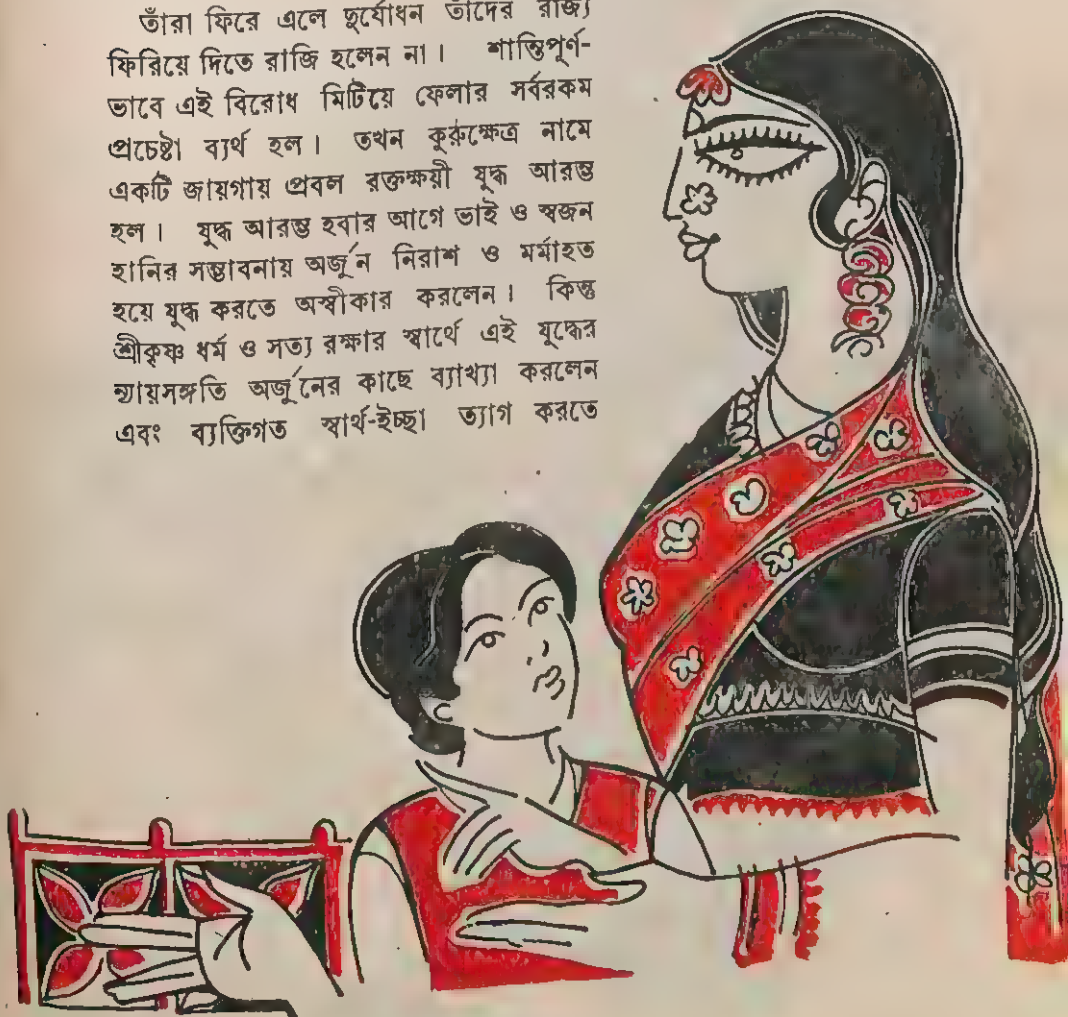 তাঁরা ফিরে এলে দুর্যোধন তাঁদের রাজ্য
ফিরিয়ে দিতে রাজি হলেন না। শান্তিপূর্ণ-
ভাবে এই বিরোধ মিটিয়ে ফেলার সর্বরকম
প্রচেষ্টা ব্যর্থ হল। তখন কুরুক্ষেত্র নামে
একটি জায়গায় প্রবল রক্তক্ষয়ী যুদ্ধ আরম্ভ
হল। যুদ্ধ আরম্ভ হবার আগে ভাই ও স্বজন
হানির সম্ভাবনায় অর্জুন নিরাশ ও মর্মাহত
হয়ে যুদ্ধ করতে অস্বীকার করলেন। কিন্তু
শ্রীকৃষ্ণ ধর্ম ও সত্য রক্ষার স্বার্থে এই যুদ্ধের
ন্যায়সঙ্গতি অর্জুনের কাছে ব্যাখ্যা করলেন
এবং ব্যক্তিগত স্বার্থ-ইচ্ছা ত্যাগ করতে